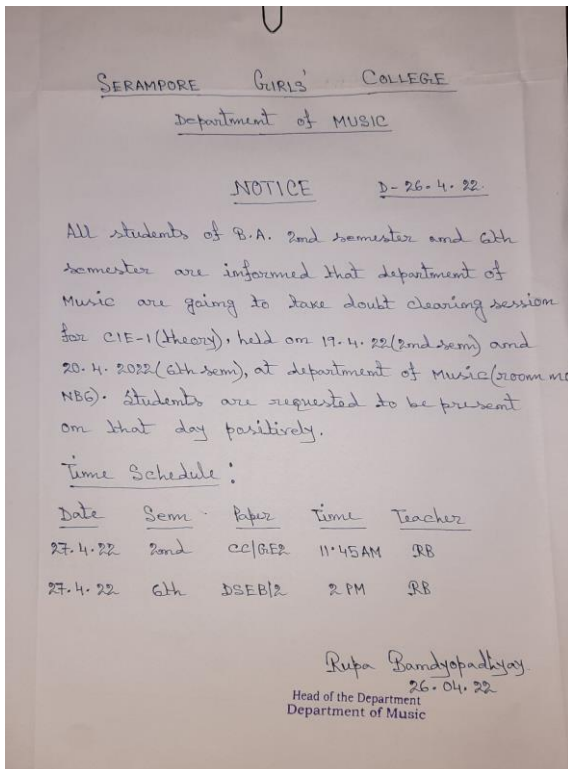 SERAMPORE GIRLS' COLLEGE
Department of MUSIC
NOTICE D- 26.4.22.
All students of B.A. 2nd semester and 6th
semester are informed that department of
Music are going to take doubt clearing session
for CIE-1(theory), held on 19.4.22(2nd sem) and
20.4.2022(6th sem), at department of Music(room no
NB6). Students are requested to be present
on that day positively.
Time Schedule:
Date Sem. Paper Time Teacher
27.4.22 2nd CC/GE2 11.45AM RB
27.4.22 6th DSEB/2 2 PM RB
Rupa Bandyopadhyay
26.04.22
Head of the Department
Department of Music